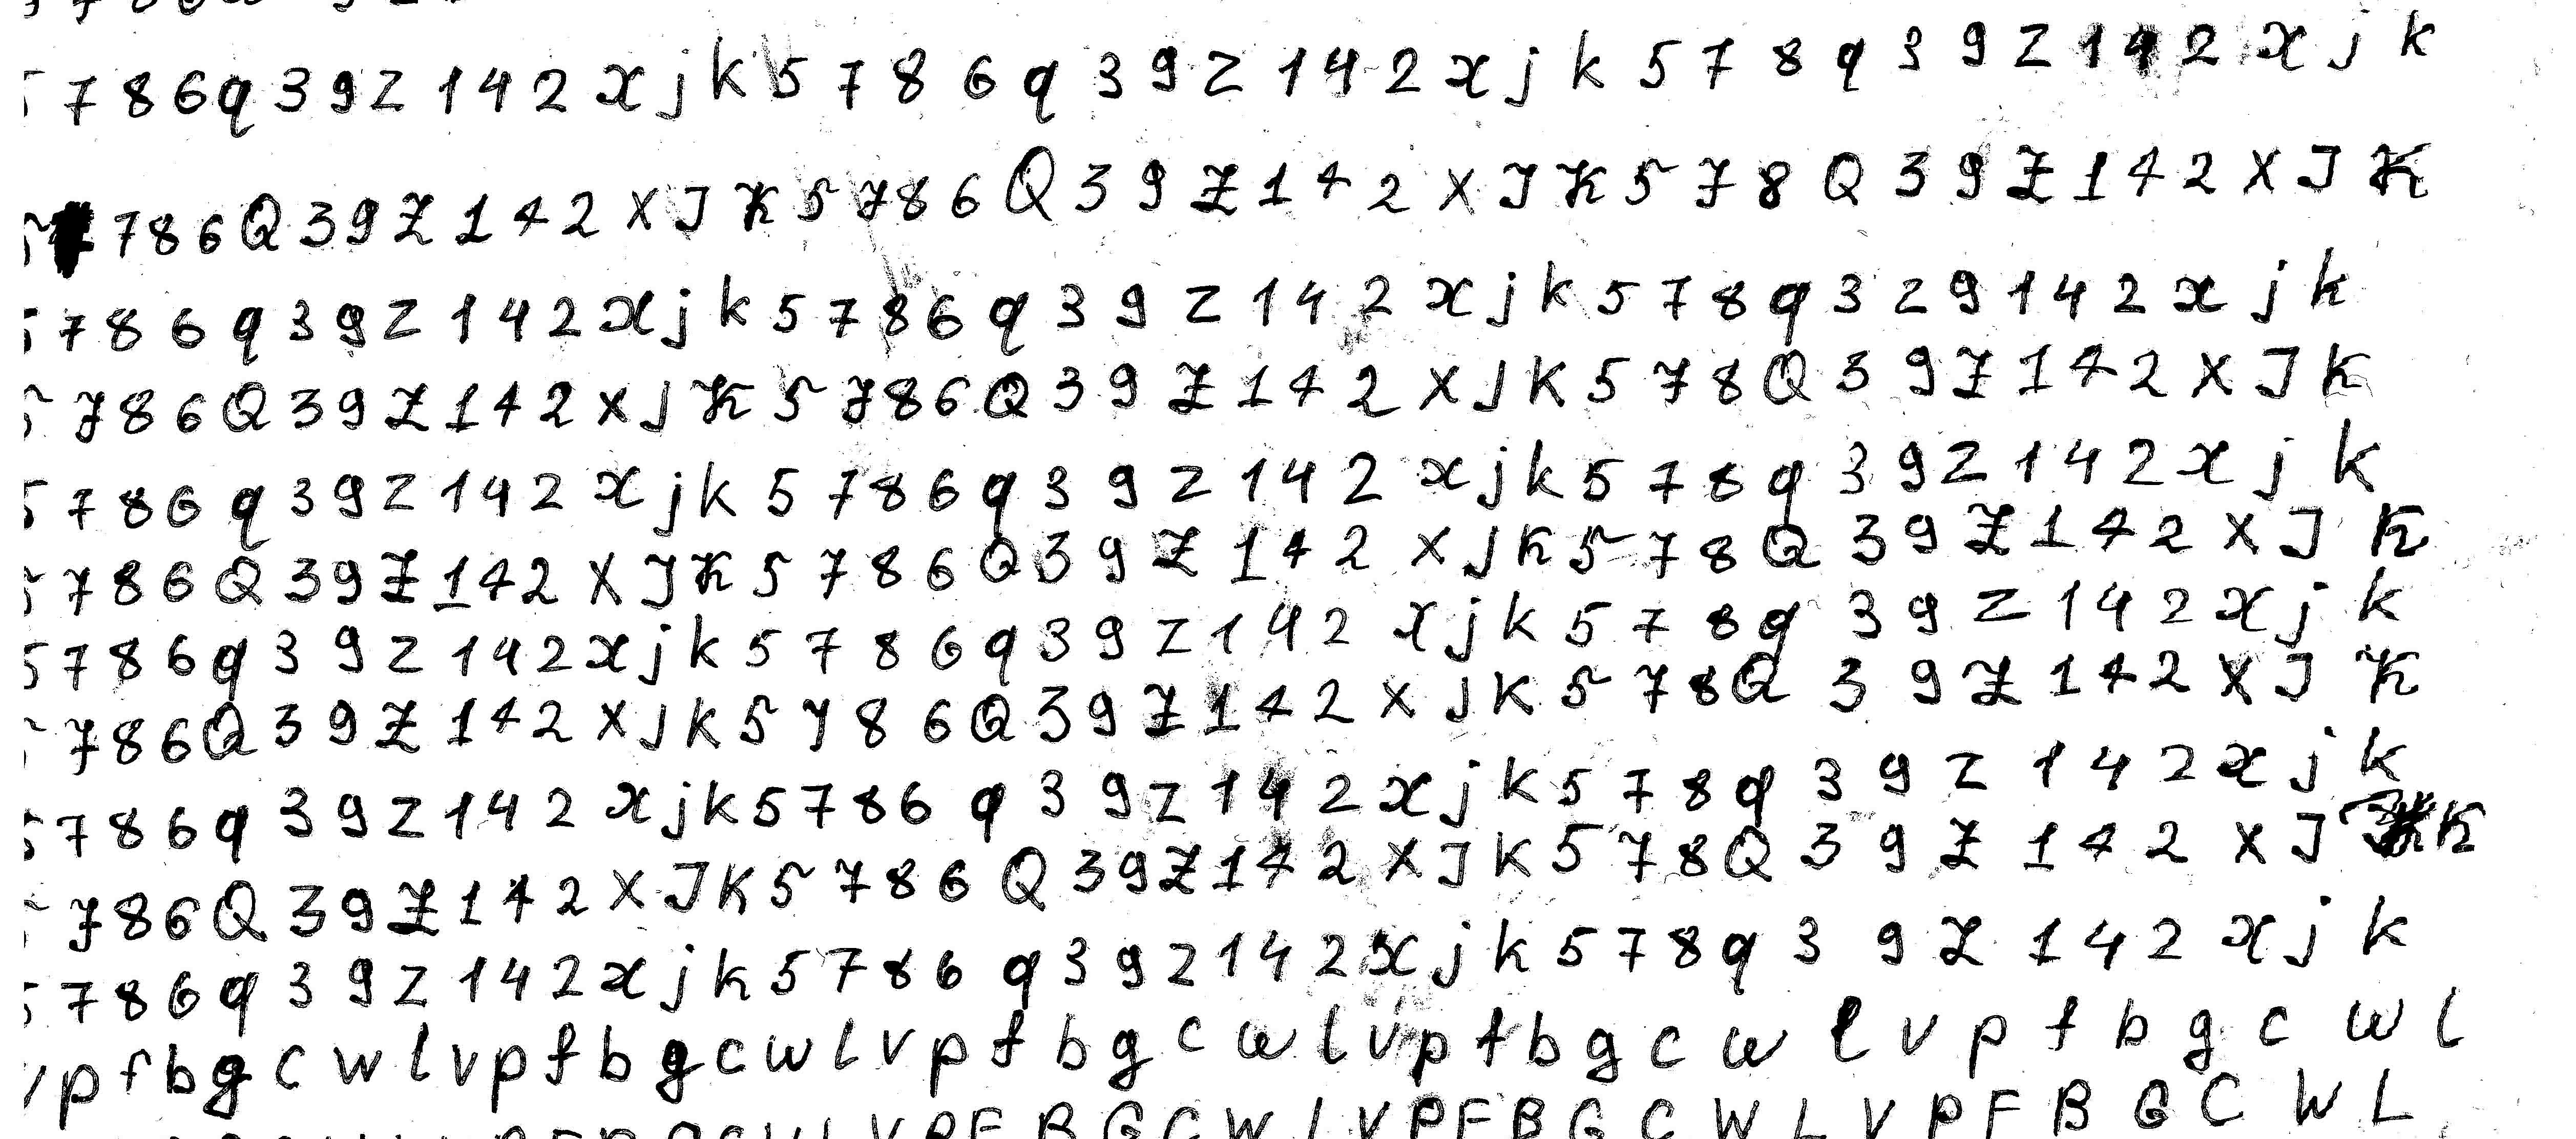 5 7 8 6 q 3 9 z 1 4 2 x j k 5 7 8 6 q 3 9 z 1 4 2 x j k 5 7 8 q 3 9 z 1 4 2 x j k
5 7 8 6 Q 3 9 Z 1 4 2 X J K 5 7 8 6 Q 3 9 Z 1 4 2 X J K 5 7 8 Q 3 9 Z 1 4 2 X J K
5 7 8 6 q 3 9 z 1 4 2 x j k 5 7 8 6 q 3 9 z 1 4 2 x j k 5 7 8 q 3 z 9 1 4 2 x j k
5 7 8 6 Q 3 9 Z 1 4 2 X J K 5 7 8 6 Q 3 9 Z 1 4 2 X J K 5 7 8 Q 3 9 Z 1 4 2 X J K
5 7 8 6 q 3 9 z 1 4 2 x j k 5 7 8 6 q 3 9 z 1 4 2 x j k 5 7 8 q 3 9 z 1 4 2 x j k
5 7 8 6 Q 3 9 Z 1 4 2 X J K 5 7 8 6 Q 3 9 Z 1 4 2 X J K 5 7 8 Q 3 9 Z 1 4 2 X J K
5 7 8 6 q 3 9 z 1 4 2 x j k 5 7 8 6 q 3 9 z 1 4 2 x j k 5 7 8 q 3 9 z 1 4 2 x j k
5 7 8 6 Q 3 9 Z 1 4 2 X J K 5 7 8 6 Q 3 9 Z 1 4 2 X J K 5 7 8 Q 3 9 Z 1 4 2 X J K
5 7 8 6 q 3 9 z 1 4 2 x j k 5 7 8 6 q 3 9 z 1 4 2 x j k 5 7 8 q 3 9 z 1 4 2 x j k
5 7 8 6 Q 3 9 Z 1 4 2 X J K 5 7 8 6 Q 3 9 Z 1 4 2 X J K 5 7 8 Q 3 9 Z 1 4 2 X J K
5 7 8 6 q 3 9 z 1 4 2 x j k 5 7 8 6 q 3 9 z 1 4 2 x j k 5 7 8 q 3 9 z 1 4 2 x j k
v p f b g c w l v p f b g c w l v p f b g c w l v p f b g c w l v p f b g c w l
V P F B G C W L V P F B G C W L V P F B G C W L